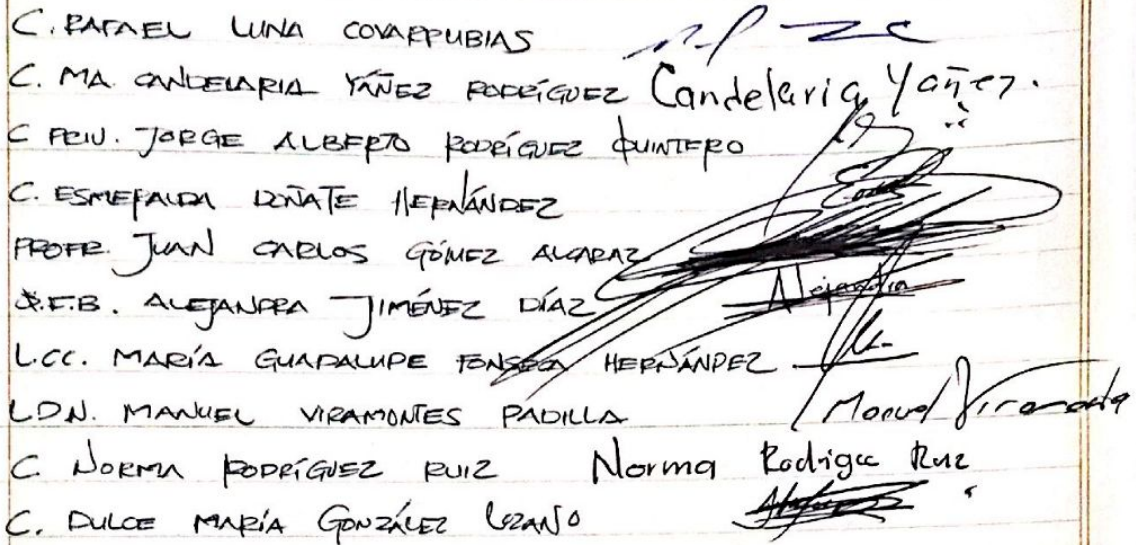 C. RAFAEL LUNA COVARRUBIAS
C. MA. CANDELARIA YÁÑEZ RODRÍGUEZ Candelaria Yañez.
C PRIV. JORGE ALBERTO RODRÍGUEZ QUINTERO
C. ESMERALDA OÑATE HERNÁNDEZ
PROFR. JUAN CARLOS GÓMEZ ALCARAZ
Q.F.B. ALEJANDRA JIMÉNEZ DÍAZ Alejandra
L.CC. MARÍA GUADALUPE FONSECA HERNÁNDEZ
LDN. MANUEL VIRAMONTES PADILLA Manuel Viramontes
C. NORMA RODRÍGUEZ RUIZ Norma Rodrigue Ruiz
C. DULCE MARÍA GONZÁLEZ LOZANO